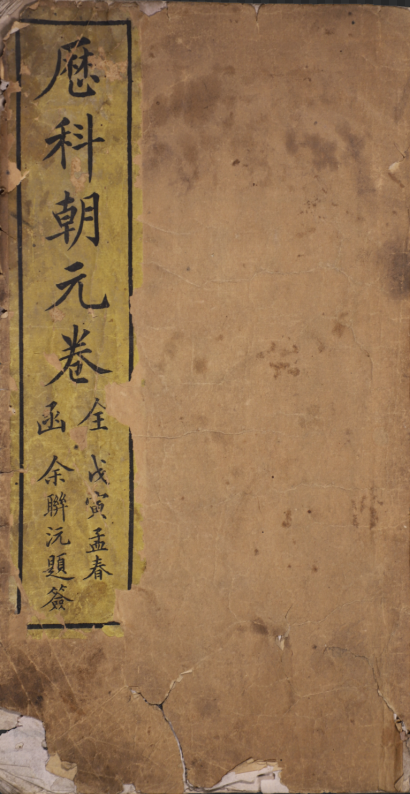 歴科朝元卷
全函
戊寅孟春
余聯沅題簽